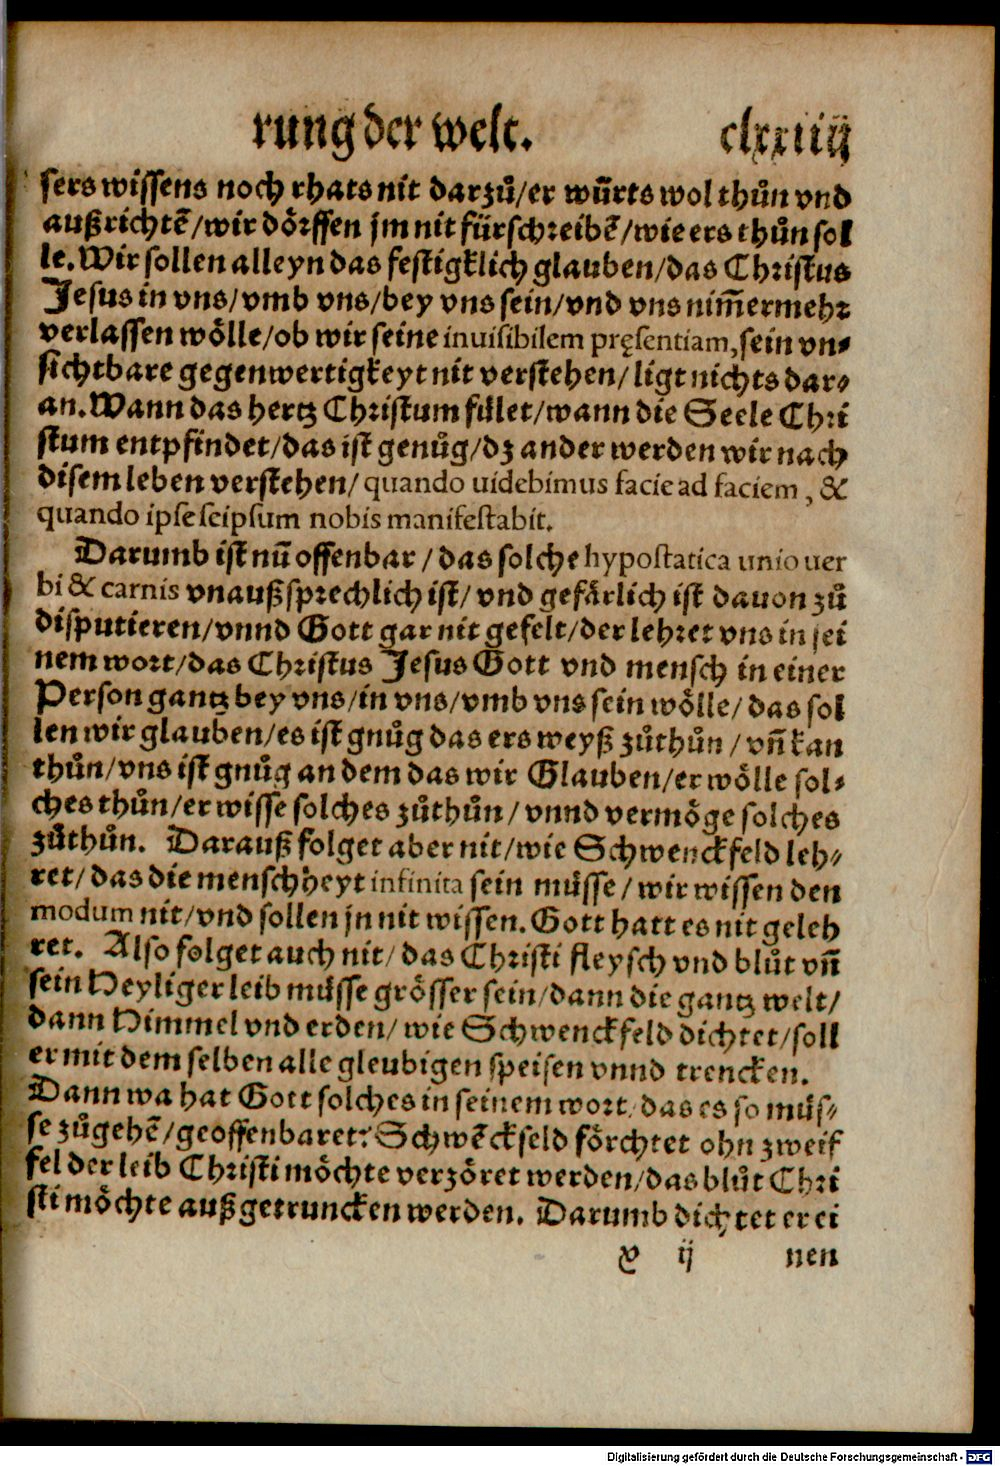 rung der welt. clxxiiij
sers wissens noch rhats nit darzů/er wůrts wol thůn vnd
außrichtē/wir dörffen jm nit fürschreibē/wie ers thůn sol
le. Wir sollen alleyn das festigklich glauben/das Christus
Jesus in vns/vmb vns/bey vns sein/vnd vns nim̄ermehr
verlassen wölle/ob wir seine inuisibilem pręsentiam, sein vn-
sichtbare gegenwertigkeyt nit verstehen/ligt nichts dar-
an. Wann das hertz Christum fület/wann die Seele Chri
stum entpfindet/das ist genůg/dz ander werden wir nach
disem leben verstehen/ quando uidebimus facie ad faciem, &
quando ipse seipsum nobis manifestabit.
Darumb ist nū offenbar/das solche hypostatica unio uer
bi & carnis vnaußsprechlich ist/ vnd gefärlich ist dauon zů
disputieren/vnnd Gott gar nit gefelt/der lehret vns in sei
nem wort/das Christus Jesus Gott vnd mensch in einer
Person gantz bey vns/in vns/vmb vns sein wölle/das sol
len wir glauben/es ist gnůg das ers weyß zůthůn/vn̄ kan
thůn/vns ist gnůg an dem das wir Glauben/er wölle sol-
ches thůn/er wisse solches zůthůn/vnnd vermöge solches
zůthůn. Darauß folget aber nit/wie Schwenckfeld leh-
ret/das die menschheyt infinita sein müsse/wir wissen den
modum nit/vnd sollen jn nit wissen. Gott hatt es nit geleh
ret. Also folget auch nit/das Christi fleysch vnd blůt vn̄
sein Heyliger leib müsse grösser sein/dann die gantz welt/
dann Himmel vnd erden/wie Schwenckfeld dichtet/soll
er mit dem selben alle gleubigen speisen vnnd trencken.
Dann wa hat Gott solches in seinem wort/das es so müs-
se zůgehē/geoffenbaret? Schwēckfeld förchtet ohn zweif
fel der leib Christi möchte verzöret werden/das blůt Chri
sti möchte außgetruncken werden. Darumb dichtet er ei
y ij nen
Digitalisierung gefördert durch die Deutsche Forschungsgemeinschaft - DFG